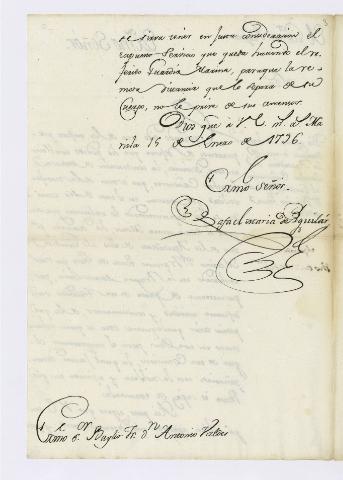 se sirva tener en justa consideracion el
expuesto Servicio que queda haciendo el re-
ferido Guardia Marina, para que la re-
mota distancia que lo separa de su
Cuerpo, no le prive de sus ascensos.
Dios gue à V.E. m.s a.s Ma-
nila 15 de Enero de 1796.
Exmo Señor.
Rafael Maria de Aguilar
Exmo S.or Baylio Fr. D.n Antonio Valdes